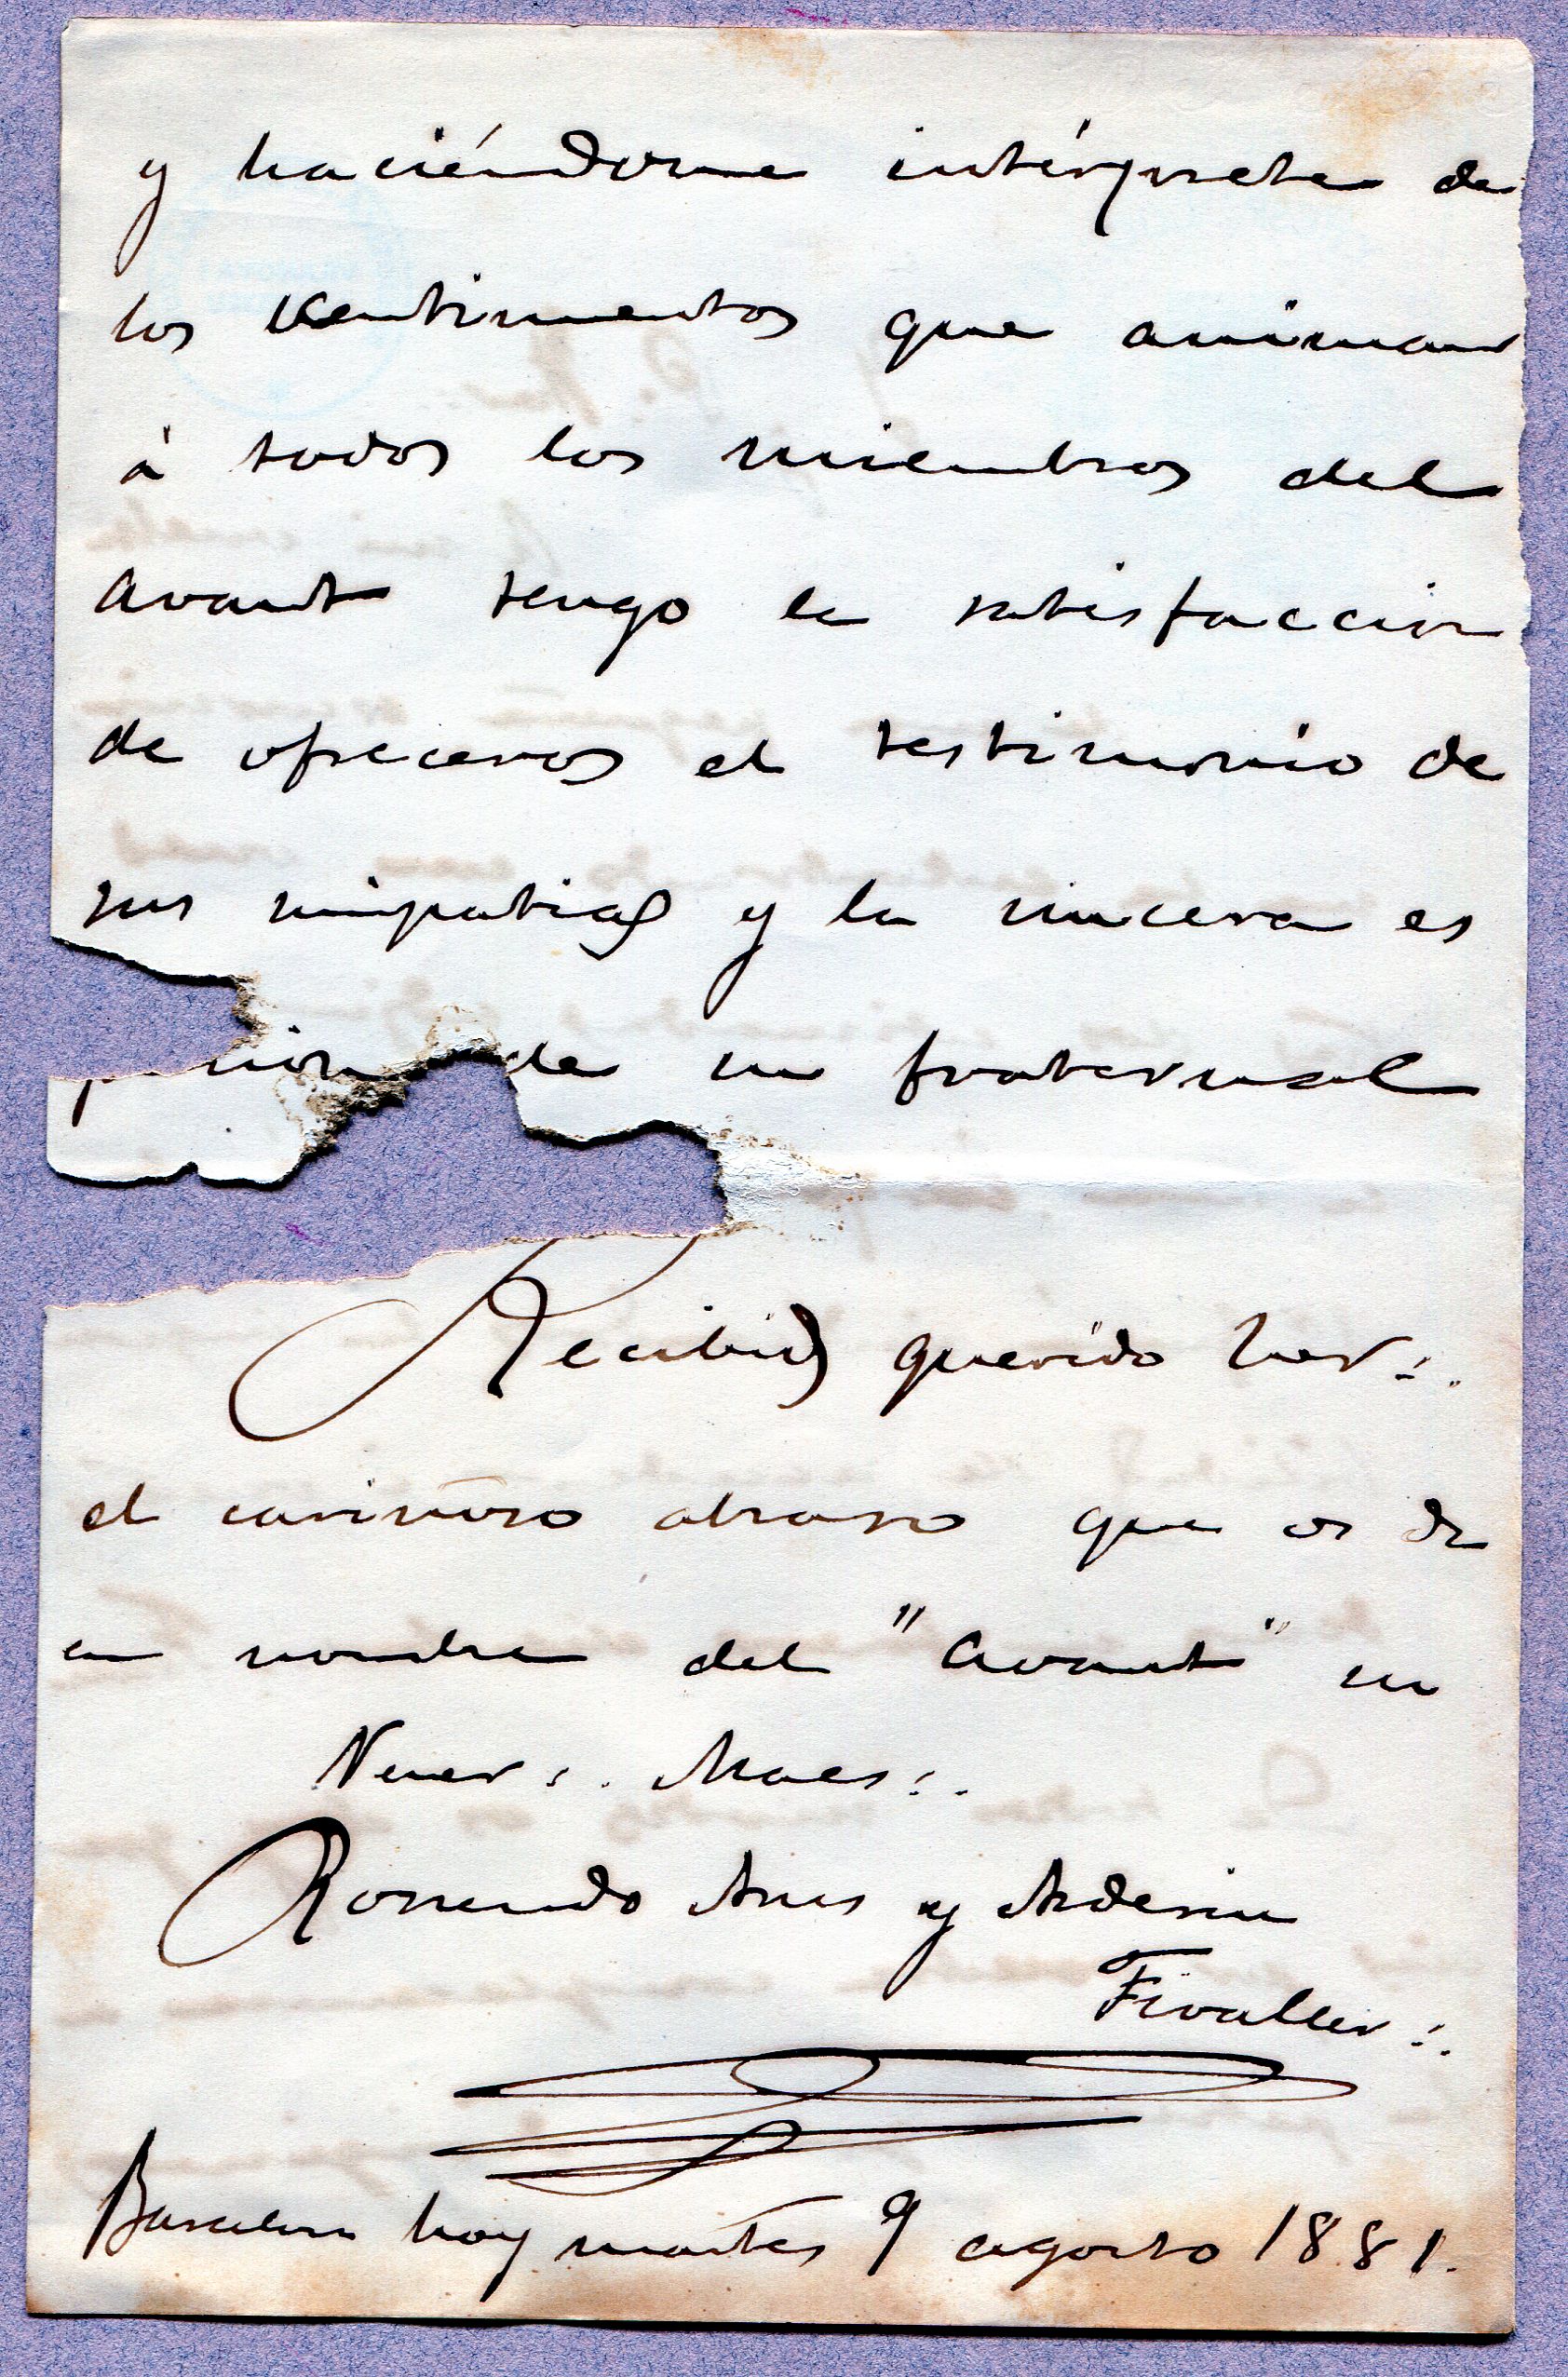 y haciéndome intérprete de
los sentimientos que animan
á todos los miembros del
Avant tengo la satisfaccion
de ofreceros el testimonio de
sus simpatias y la sincera es
presion de su fraternal
Recibid querido her∴
el cariñoso abrazo que os da
en nombre del "Avant" su
Vener∴ Maes∴
Rossendo Arus y Arderiu
Fivaller∴
Barcelona hoy martes 9 agosto 1881.